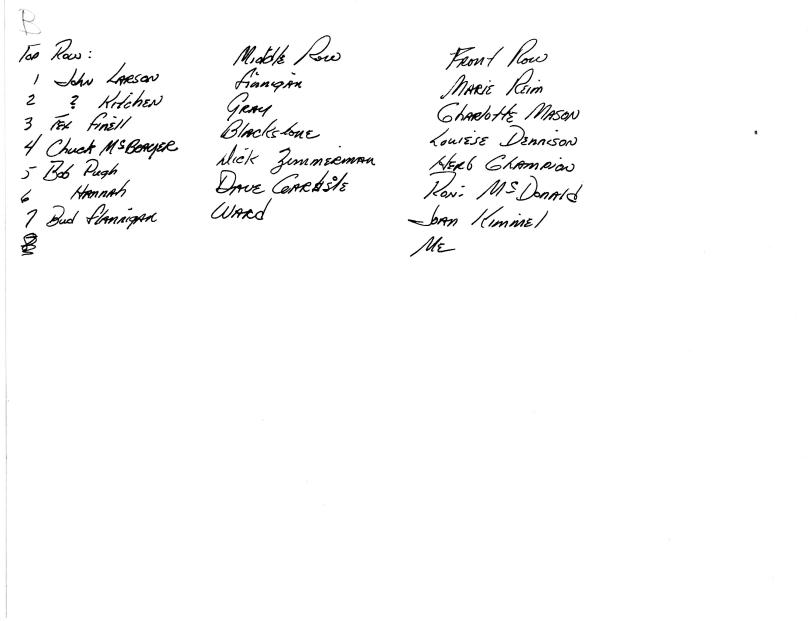 B
Top Row:
1 John Larson
2 ? Kitchen
3 Tex Finell
4 Chuck McBrayer
5 Bob Pugh
6 Hannah
7 Bud Flannigan
8
Middle Row
Finnigan
Gray
Blackstone
Nick Zimmerman
Dave Carlisle
Ward
Front Row
Marie Reim
Charlotte Mason
Louiese Dennison
Herb Champion
Roni McDonald
Joan Kimmel
Me